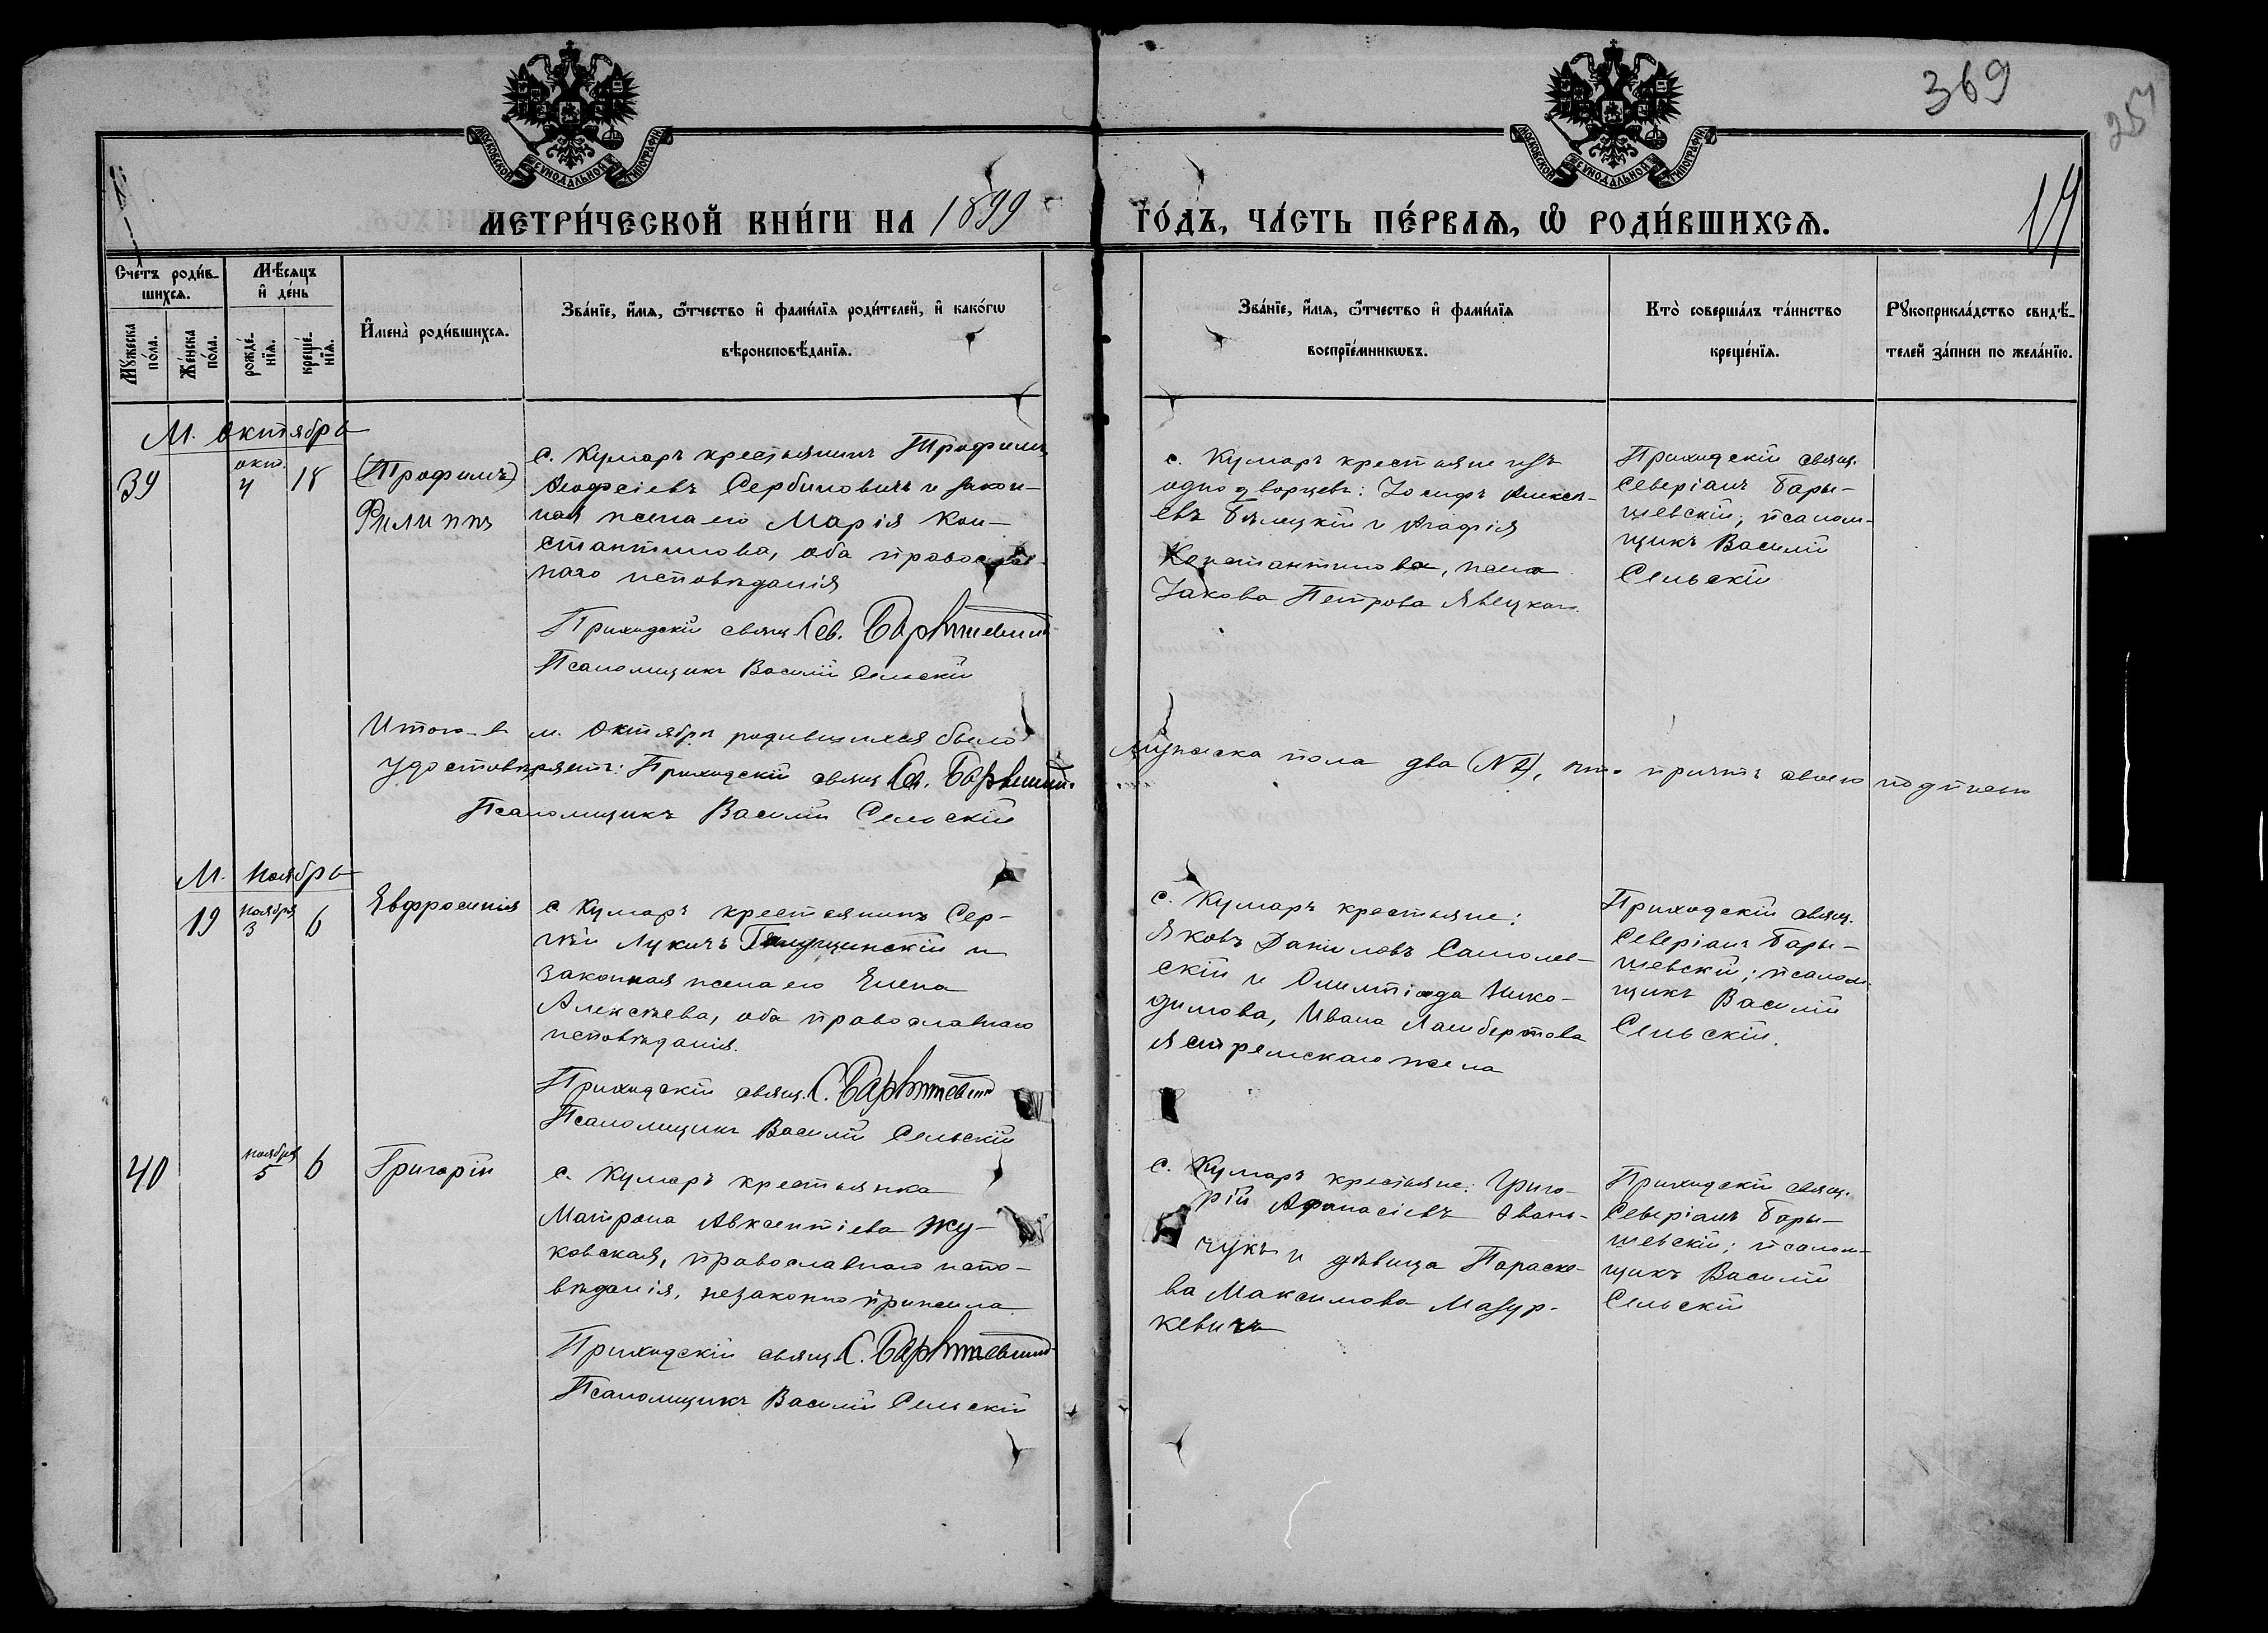 369
257
17
МОСКОВСКОЙ СѴНОДАЛЬНОЙ ТИПОГРАФІИ
МОСКОВСКОЙ СѴНОДАЛЬНОЙ ТИПОГРАФІИ
МЕТРИ́ЧЕСКОЙ КНИ́ГИ НА 1899 ГО́ДЪ, ЧА́СТЬ ПЕ́РВАѦ, Ѽ РОДИ́ВШИХСѦ.
Сче́тъ роди́в-
шихсѧ.
Мѣ́сѧцъ
и҆ де́нь
Мꙋ́жеска
по́ла.
Же́нска
по́ла.
рожде́-
нїѧ.
креще́-
нїѧ.
И҆мена̀ роди́вшихсѧ.
Зва́нїе, и҆́мѧ, ѻ҆́тчество и҆ фами́лїѧ роди́телей, и҆ како́гѡ
вѣроисповѣ́данїѧ.
Зва́нїе, и҆́мѧ, ѻ҆́тчество и҆ фами́лїѧ
воспрїе́мникѡвъ.
Кто̀ соверша́лъ та́инство
креще́нїѧ.
Рꙋкоприкла́дство свидѣ́-
телей за́писи по жела́нїю.
М. Октябрь
39
окт.
4
18
(Трофимъ)
Филиппъ
с. Кумаръ крестьянинъ Трофимъ
Ѳеофсіевъ Сербиновичъ и закон-
ная жена его Марія Кон-
стантинова, оба православ-
наго исповѣданія
Приходскій свящ. Сев. Барышевскій
Псаломщикъ Василій Сельскій
с. Кумаръ крестьяне изъ
однодворцевъ: Іосифъ Алексѣ-
евъ Бялецкій и Агафія
Константинова, жена
Іакова Петрова Явецкаго.
Приходскій свящ.
Северіанъ Бары-
шевскій; псалом-
щикъ Василій
Сельскій
Итого въ м. Октябрѣ родившихся было мужеска пола два (№ 2), что причтъ своею подписью
удостовѣряетъ: Приходскій свящ. Св. Барышевскій.
Псаломщикъ Василій Сельскій
М. Ноябрь
19
ноября
3
6
Евфросинія
с Кумаръ крестьянинъ Сер-
гѣй Лукичъ и
законная жена его Елена
Алексѣева, оба православнаго
исповѣданія.
Приходскій свящ. С. Барышевскій
Псаломщикъ Василій Сельскій
с. Кумаръ крестьяне:
Яковъ Даниловъ Самолев-
скій и Олимпіада Нико-
димова, Ивана Ламбертова
Ястремскаго жена
Приходскій свящ.
Северіанъ Бары-
шевскій; псалом-
щикъ Василій
Сельскій.
40
ноября
5
6
Григорій
с. Кумаръ крестьянка
Матрона Авксентіева Жу-
ковская, православнаго испо-
вѣданія, незаконно прижила.
Приходскій свящ. С. Барышевскій
Псаломщикъ Василій Сельскій
с. Кумаръ крестьяне: Григо-
рій Афанасіевъ Ивано-
чукъ и дѣвица Параске-
ва Максимова Мазур-
кевичъ
Приходскій свящ.
Северіанъ Бары-
шевскій; псалом-
щикъ Василій
Сельскій